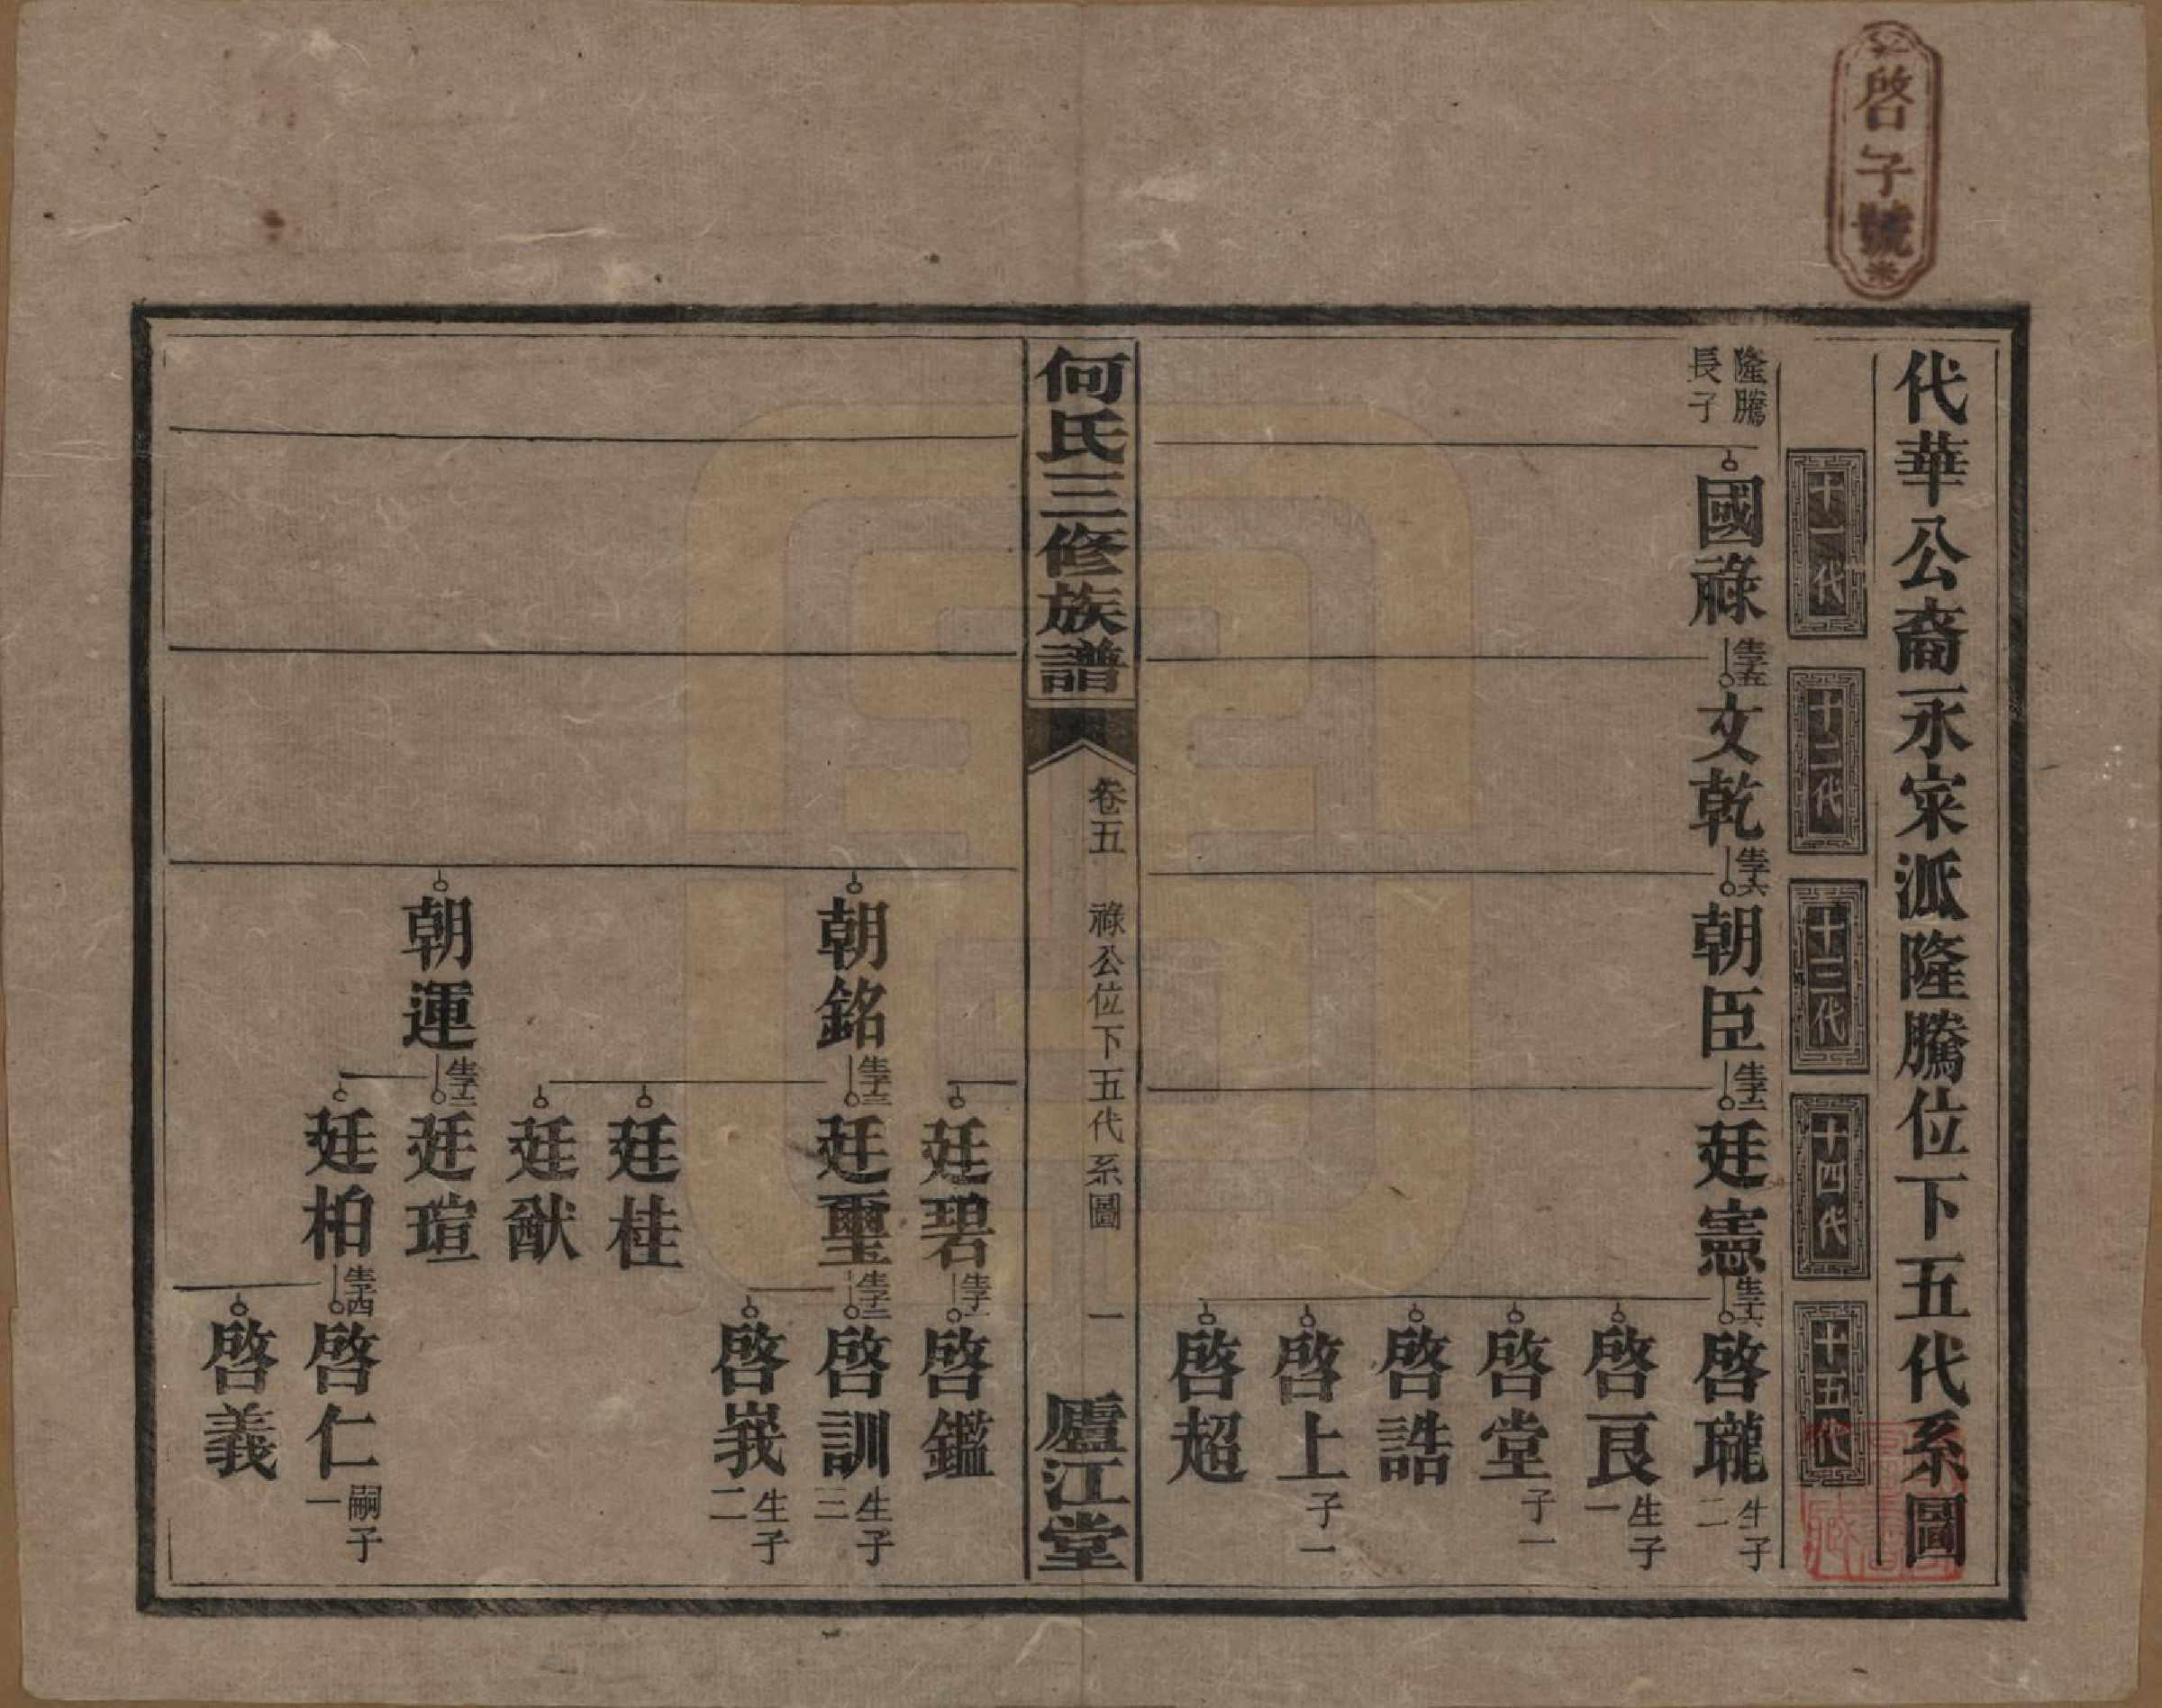 啓字號
代華公裔永宋派隆騰位下五代系圖
十一代
十二代
十三代
十四代
十五代
隆騰
長子
國祿
生子五
文乾
生子六
朝臣
生子二
廷憲
生子六
啓瓏
生子
二
啓良
生子
一
啓堂
子一
啓誥
啓上
子一
啓超
何氏三修族譜
卷五
祿公位下五代系圖
一
廬江堂
廷碧
生子一
啓鑑
朝銘
生子三
廷璽
生子二
啓訓
生子
三
啓峩
生子
二
廷桂
廷猷
朝運
生子二
廷瑄
廷柏
生子四
啓仁
嗣子
一
啓義